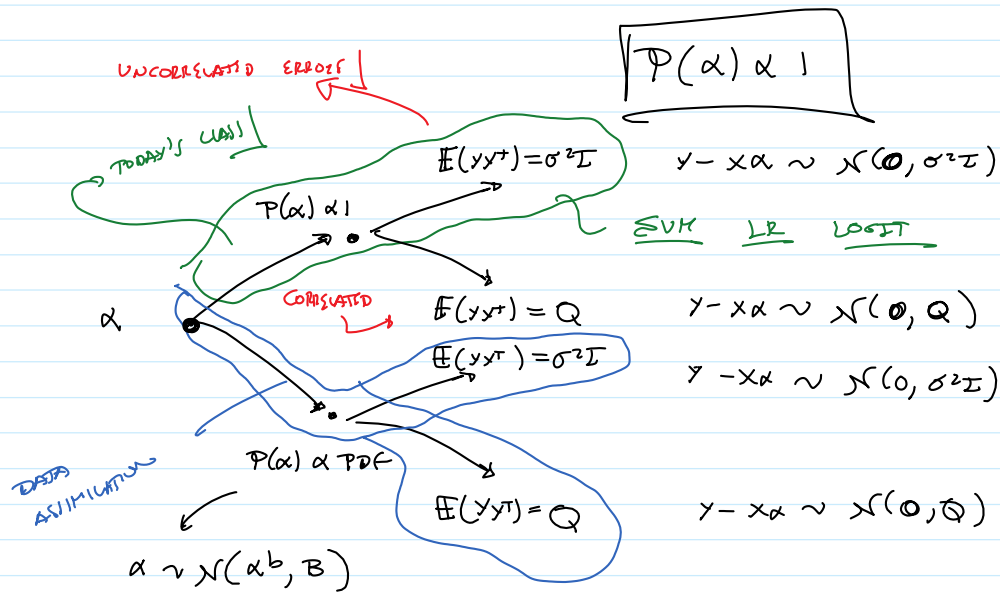 P(α) ∝ 1
UNCORRELATED ERRORS
TODAY'S CLASS
E(YYᵀ) = σ²I
Y - Xα ~ N(0, σ²I)
P(α) ∝ 1
SVM LR LOGIT
CORRELATED
E(YYᵀ) = Q
Y - Xα ~ N(0, Q)
α
E(YYᵀ) = σ²I
Y - Xα ~ N(0, σ²I)
P(α) ∝ PDF
DATA
ASSIMILATION
E(YYᵀ) = Q
Y - Xα ~ N(0, Q)
α ~ N(αᵇ, B)